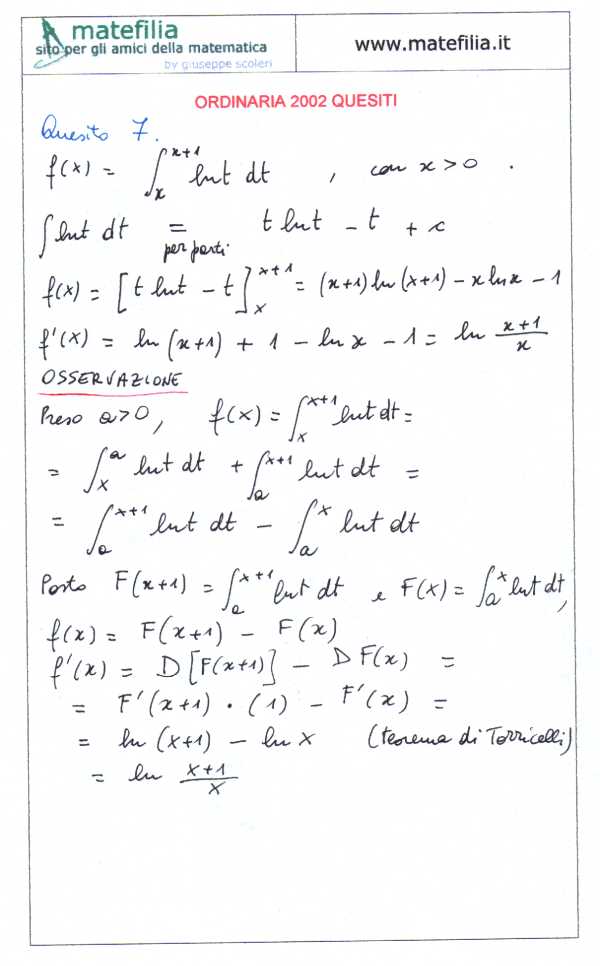 matefilia
sito per gli amici della matematica
by giuseppe scoleri
www.matefilia.it
ORDINARIA 2002 QUESITI
Quesito 7.
f(x) = ∫_x^{x+1} ln t dt , con x > 0 .
∫ ln t dt = t ln t - t + c
per parti
f(x) = [t ln t - t]_x^{x+1} = (x+1) ln (x+1) - x ln x - 1
f'(x) = ln (x+1) + 1 - ln x - 1 = ln \frac{x+1}{x}
OSSERVAZIONE
Preso a > 0, f(x) = ∫_x^{x+1} ln t dt =
= ∫_x^a ln t dt + ∫_a^{x+1} ln t dt =
= ∫_a^{x+1} ln t dt - ∫_a^x ln t dt
Posto F(x+1) = ∫_a^{x+1} ln t dt e F(x) = ∫_a^x ln t dt,
f(x) = F(x+1) - F(x)
f'(x) = D [F(x+1)] - D F(x) =
= F'(x+1) · (1) - F'(x) =
= ln (x+1) - ln x (teorema di Torricelli)
= ln \frac{x+1}{x}